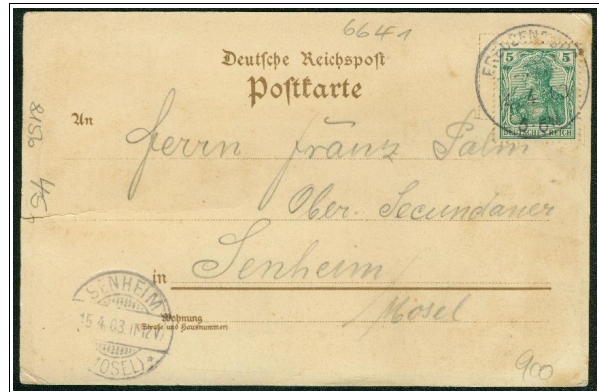 6641
Deutsche Reichspost
Postkarte
5 5
DEUTSCHES REICH
An
Herrn Franz Palm
Ober. Secundaner
in Senheim
Mosel
Wohnung
(Straße und Hausnummer)
SENHEIM
15.4.03. 11-12V.
(MOSEL) *
8156
45
900